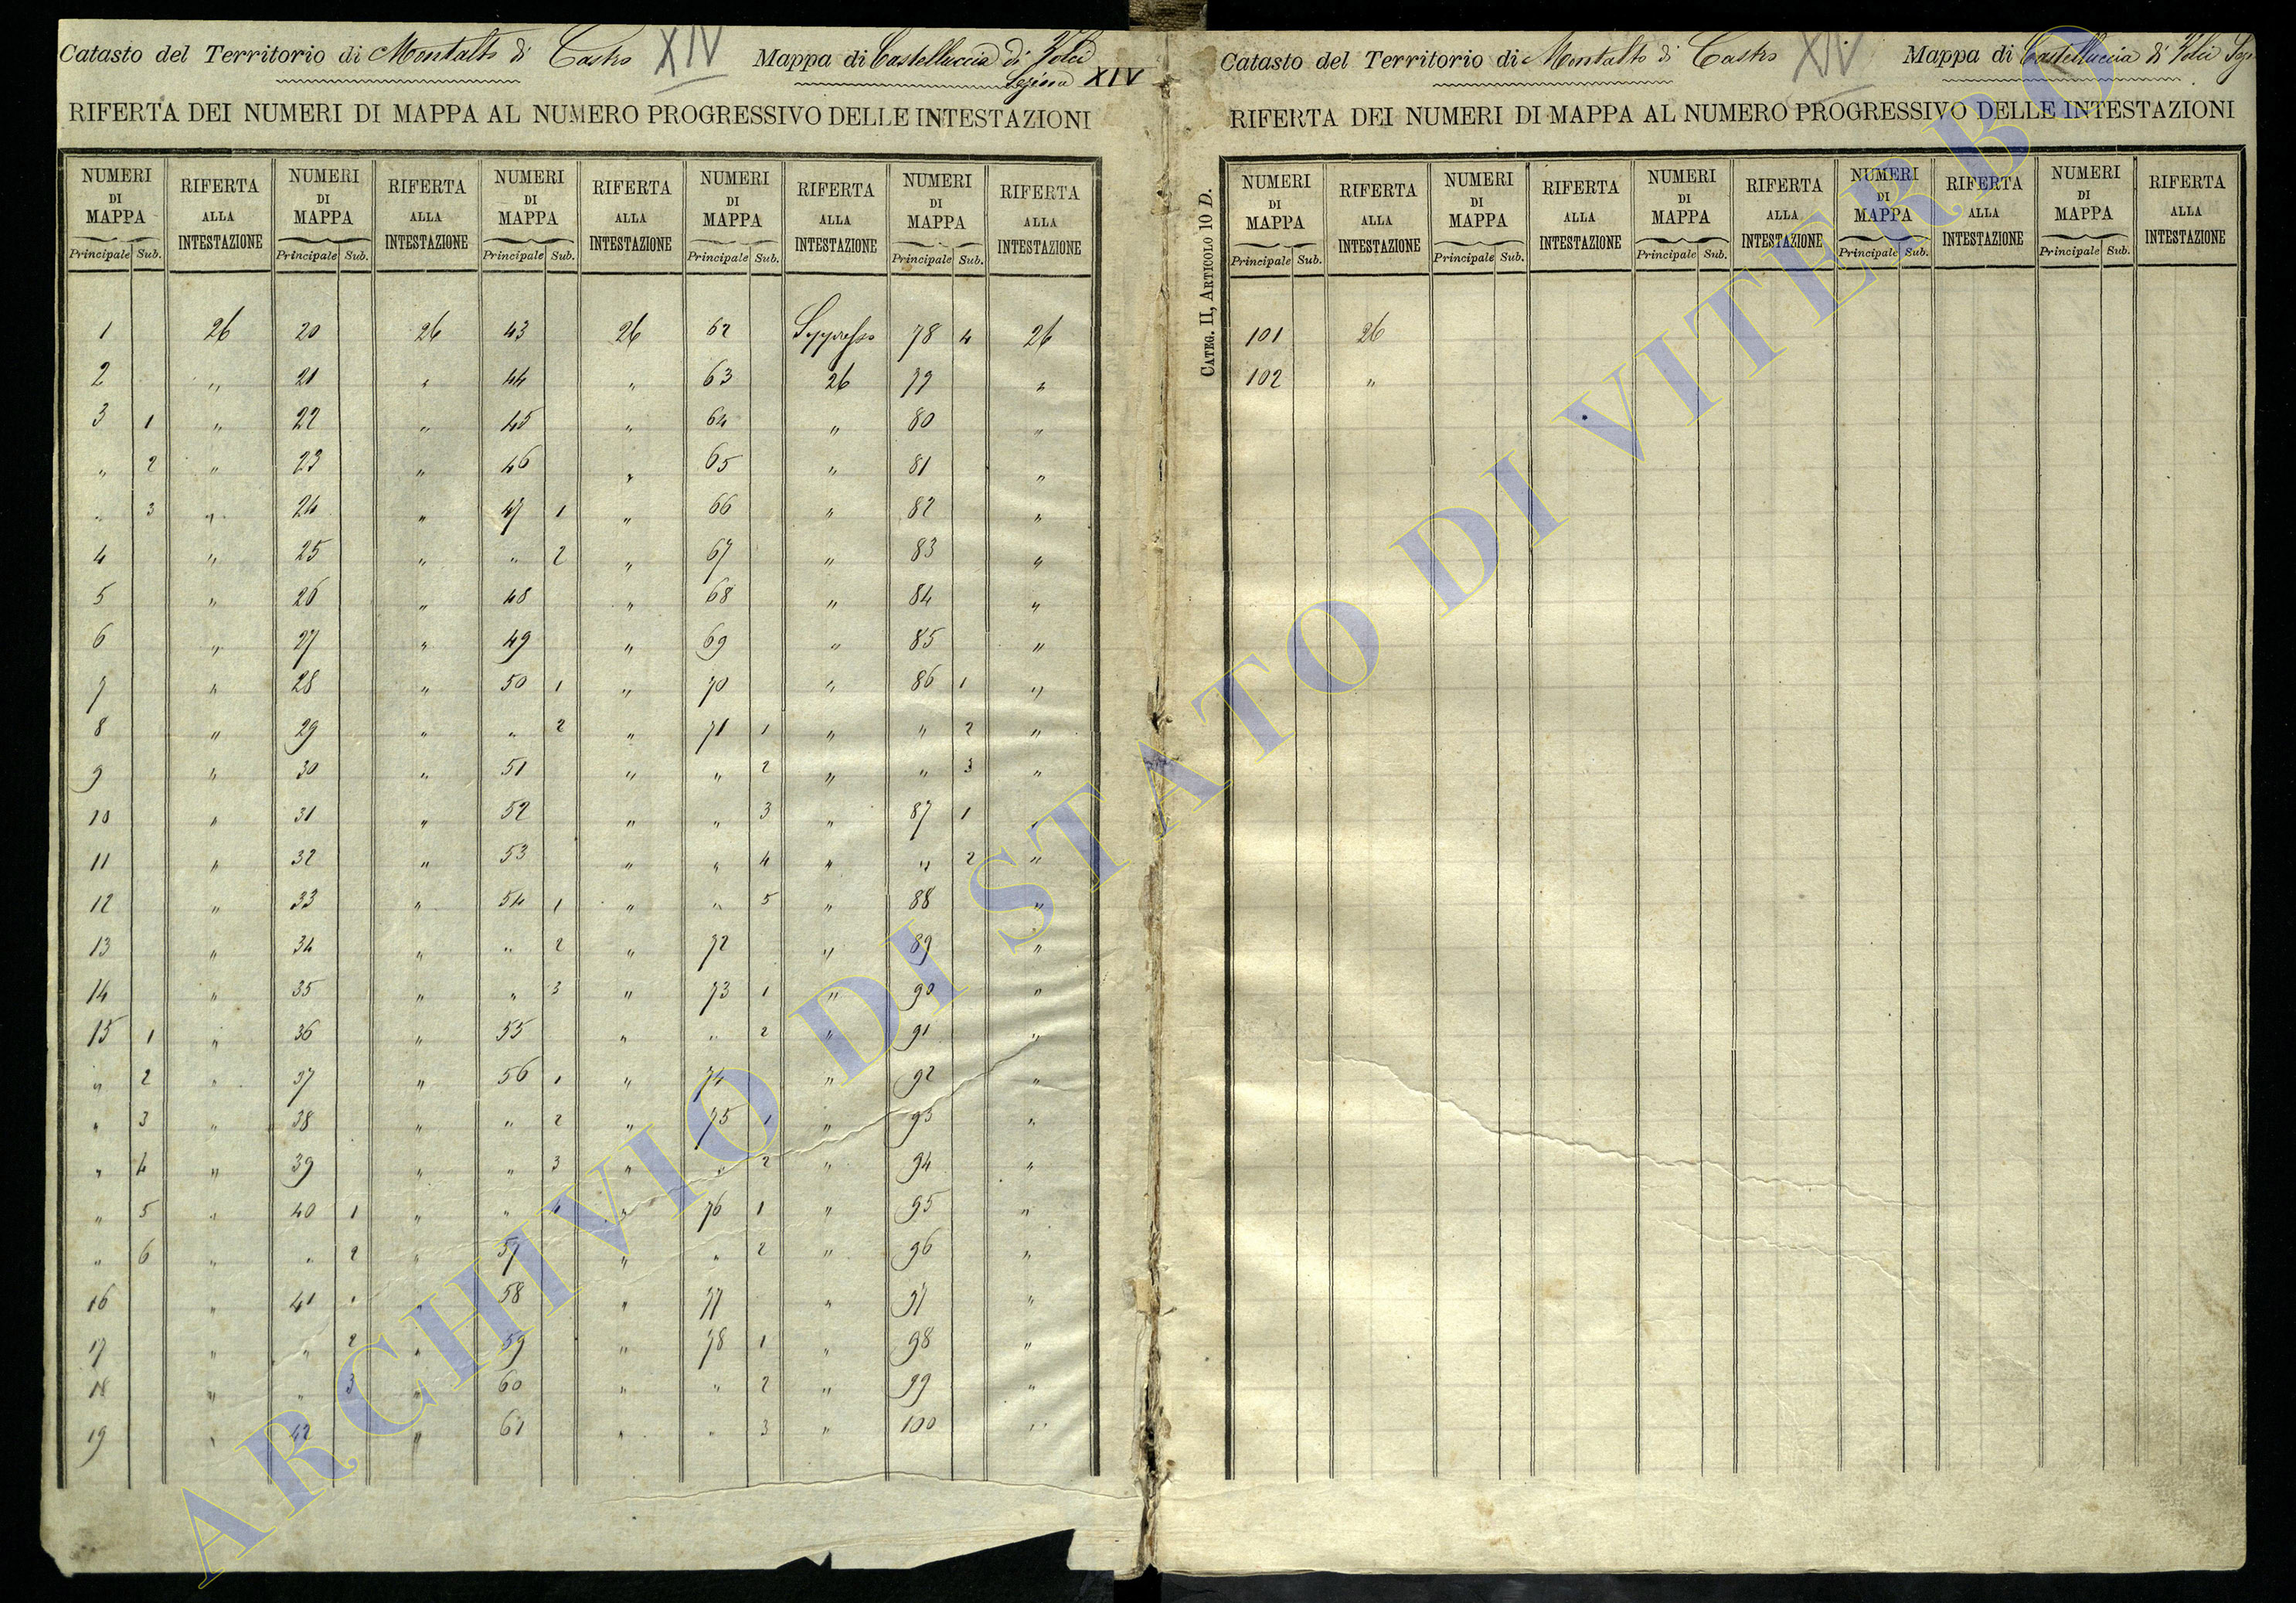 Catasto del Territorio di Montalto di Castro XIV Mappa di Castelluccia di Volci
Sezione XIV
RIFERTA DEI NUMERI DI MAPPA AL NUMERO PROGRESSIVO DELLE INTESTAZIONI
NUMERI DI MAPPA RIFERTA ALLA INTESTAZIONE NUMERI DI MAPPA RIFERTA ALLA INTESTAZIONE NUMERI DI MAPPA RIFERTA ALLA INTESTAZIONE NUMERI DI MAPPA RIFERTA ALLA INTESTAZIONE NUMERI DI MAPPA RIFERTA ALLA INTESTAZIONE
Principale Sub. Principale Sub. Principale Sub. Principale Sub. Principale Sub.
1 26 20 26 43 26 62 Soppresso 78 4 26
2 " 21 " 44 " 63 26 79 "
3 1 " 22 " 45 " 64 " 80 "
" 2 " 23 " 46 " 65 " 81 "
" 3 " 24 " 47 1 " 66 " 82 "
4 " 25 " " 2 " 67 " 83 "
5 " 26 " 48 " 68 " 84 "
6 " 27 " 49 " 69 " 85 "
7 " 28 " 50 1 " 70 " 86 1 "
8 " 29 " " 2 " 71 1 " " 2 "
9 " 30 " 51 " " 2 " " 3 "
10 " 31 " 52 " " 3 " 87 1 "
11 " 32 " 53 " " 4 " " 2 "
12 " 33 " 54 1 " " 5 " 88 "
13 " 34 " " 2 " 72 " 89 "
14 " 35 " " 3 " 73 1 " 90 "
15 1 " 36 " 55 " " 2 " 91 "
" 2 " 37 " 56 1 " 74 " 92 "
" 3 " 38 " " 2 " 75 1 " 93 "
" 4 " 39 " " 3 " " 2 " 94 "
" 5 " 40 1 " " 4 " 76 1 " 95 "
" 6 " " 2 " 57 " " 2 " 96 "
16 " 41 1 " 58 " 77 " 97 "
17 " " 2 " 59 " 78 1 " 98 "
18 " " 3 " 60 " " 2 " 99 "
19 " 42 " 61 " " 3 " 100 "
Catasto del Territorio di Montalto di Castro XIV Mappa di Castelluccia di Volci
RIFERTA DEI NUMERI DI MAPPA AL NUMERO PROGRESSIVO DELLE INTESTAZIONI
CATEG. II, ARTICOLO 10 D.
NUMERI DI MAPPA RIFERTA ALLA INTESTAZIONE NUMERI DI MAPPA RIFERTA ALLA INTESTAZIONE NUMERI DI MAPPA RIFERTA ALLA INTESTAZIONE NUMERI DI MAPPA RIFERTA ALLA INTESTAZIONE NUMERI DI MAPPA RIFERTA ALLA INTESTAZIONE
Principale Sub. Principale Sub. Principale Sub. Principale Sub. Principale Sub.
101 26
102 "
ARCHIVIO DI STATO DI VITERBO